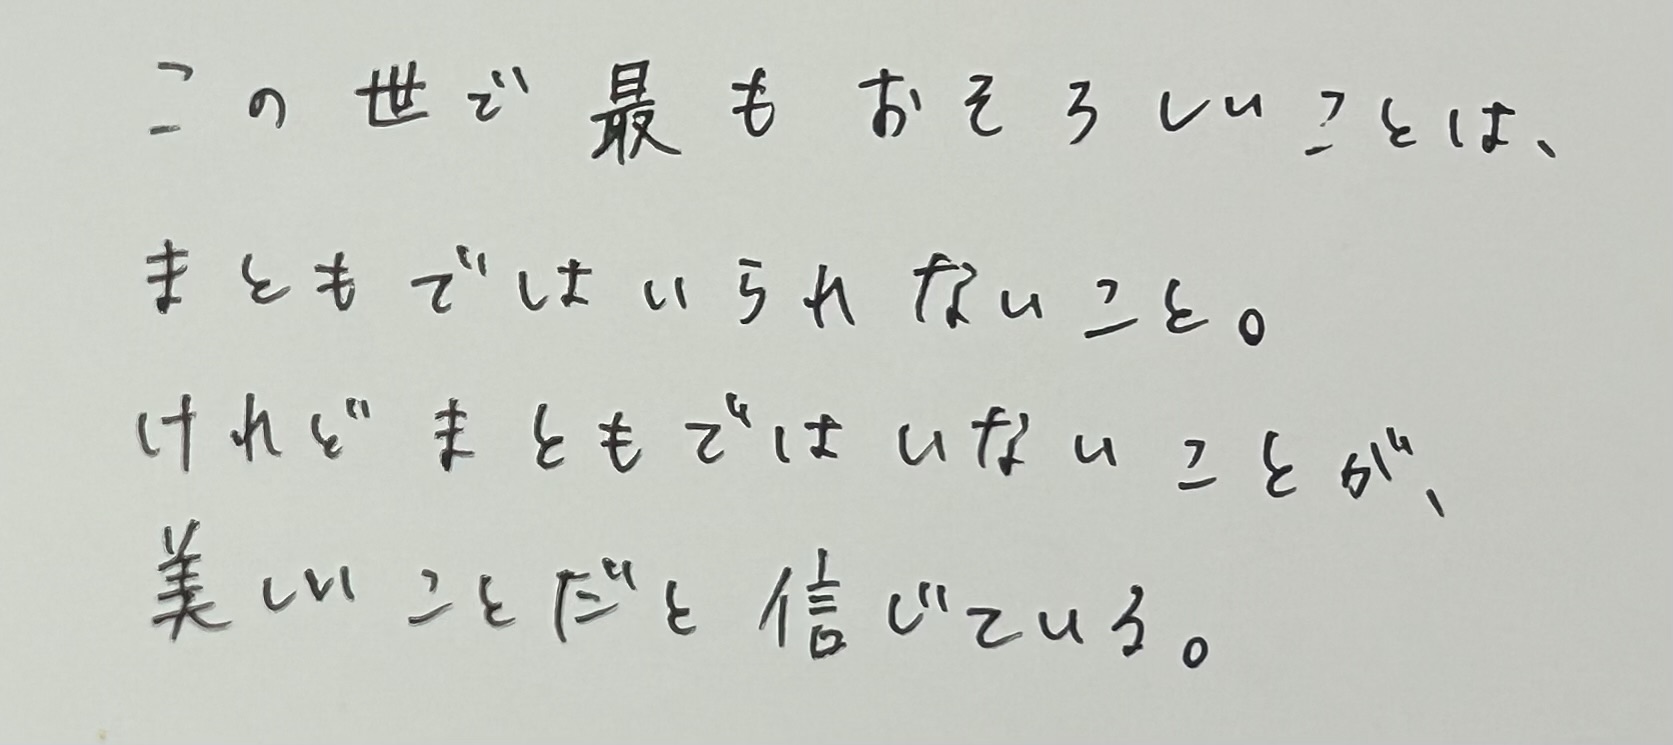 この世で最もおそろしいことは、
まともではいられないこと。
けれどまともではいないことが、
美しいことだと信じている。